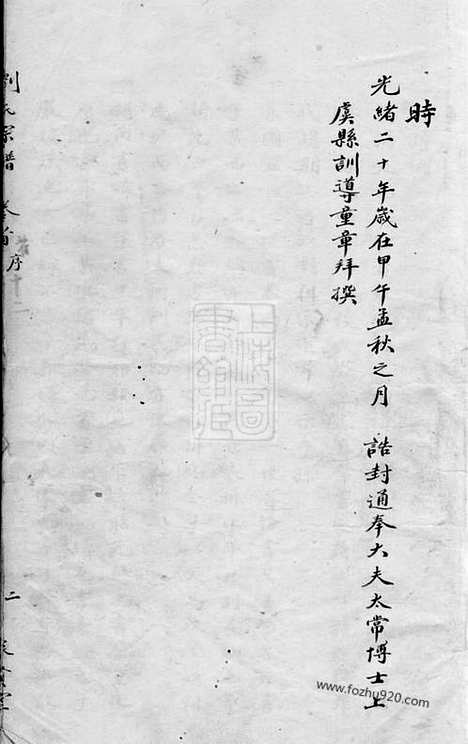 時
光緒二十年歲在甲午孟秋之月 誥封通奉大夫太常博士上
虞縣訓導童章拜撰
劉氏宗譜 卷首 序
二
上海圖書館藏
www.fozhu920.com